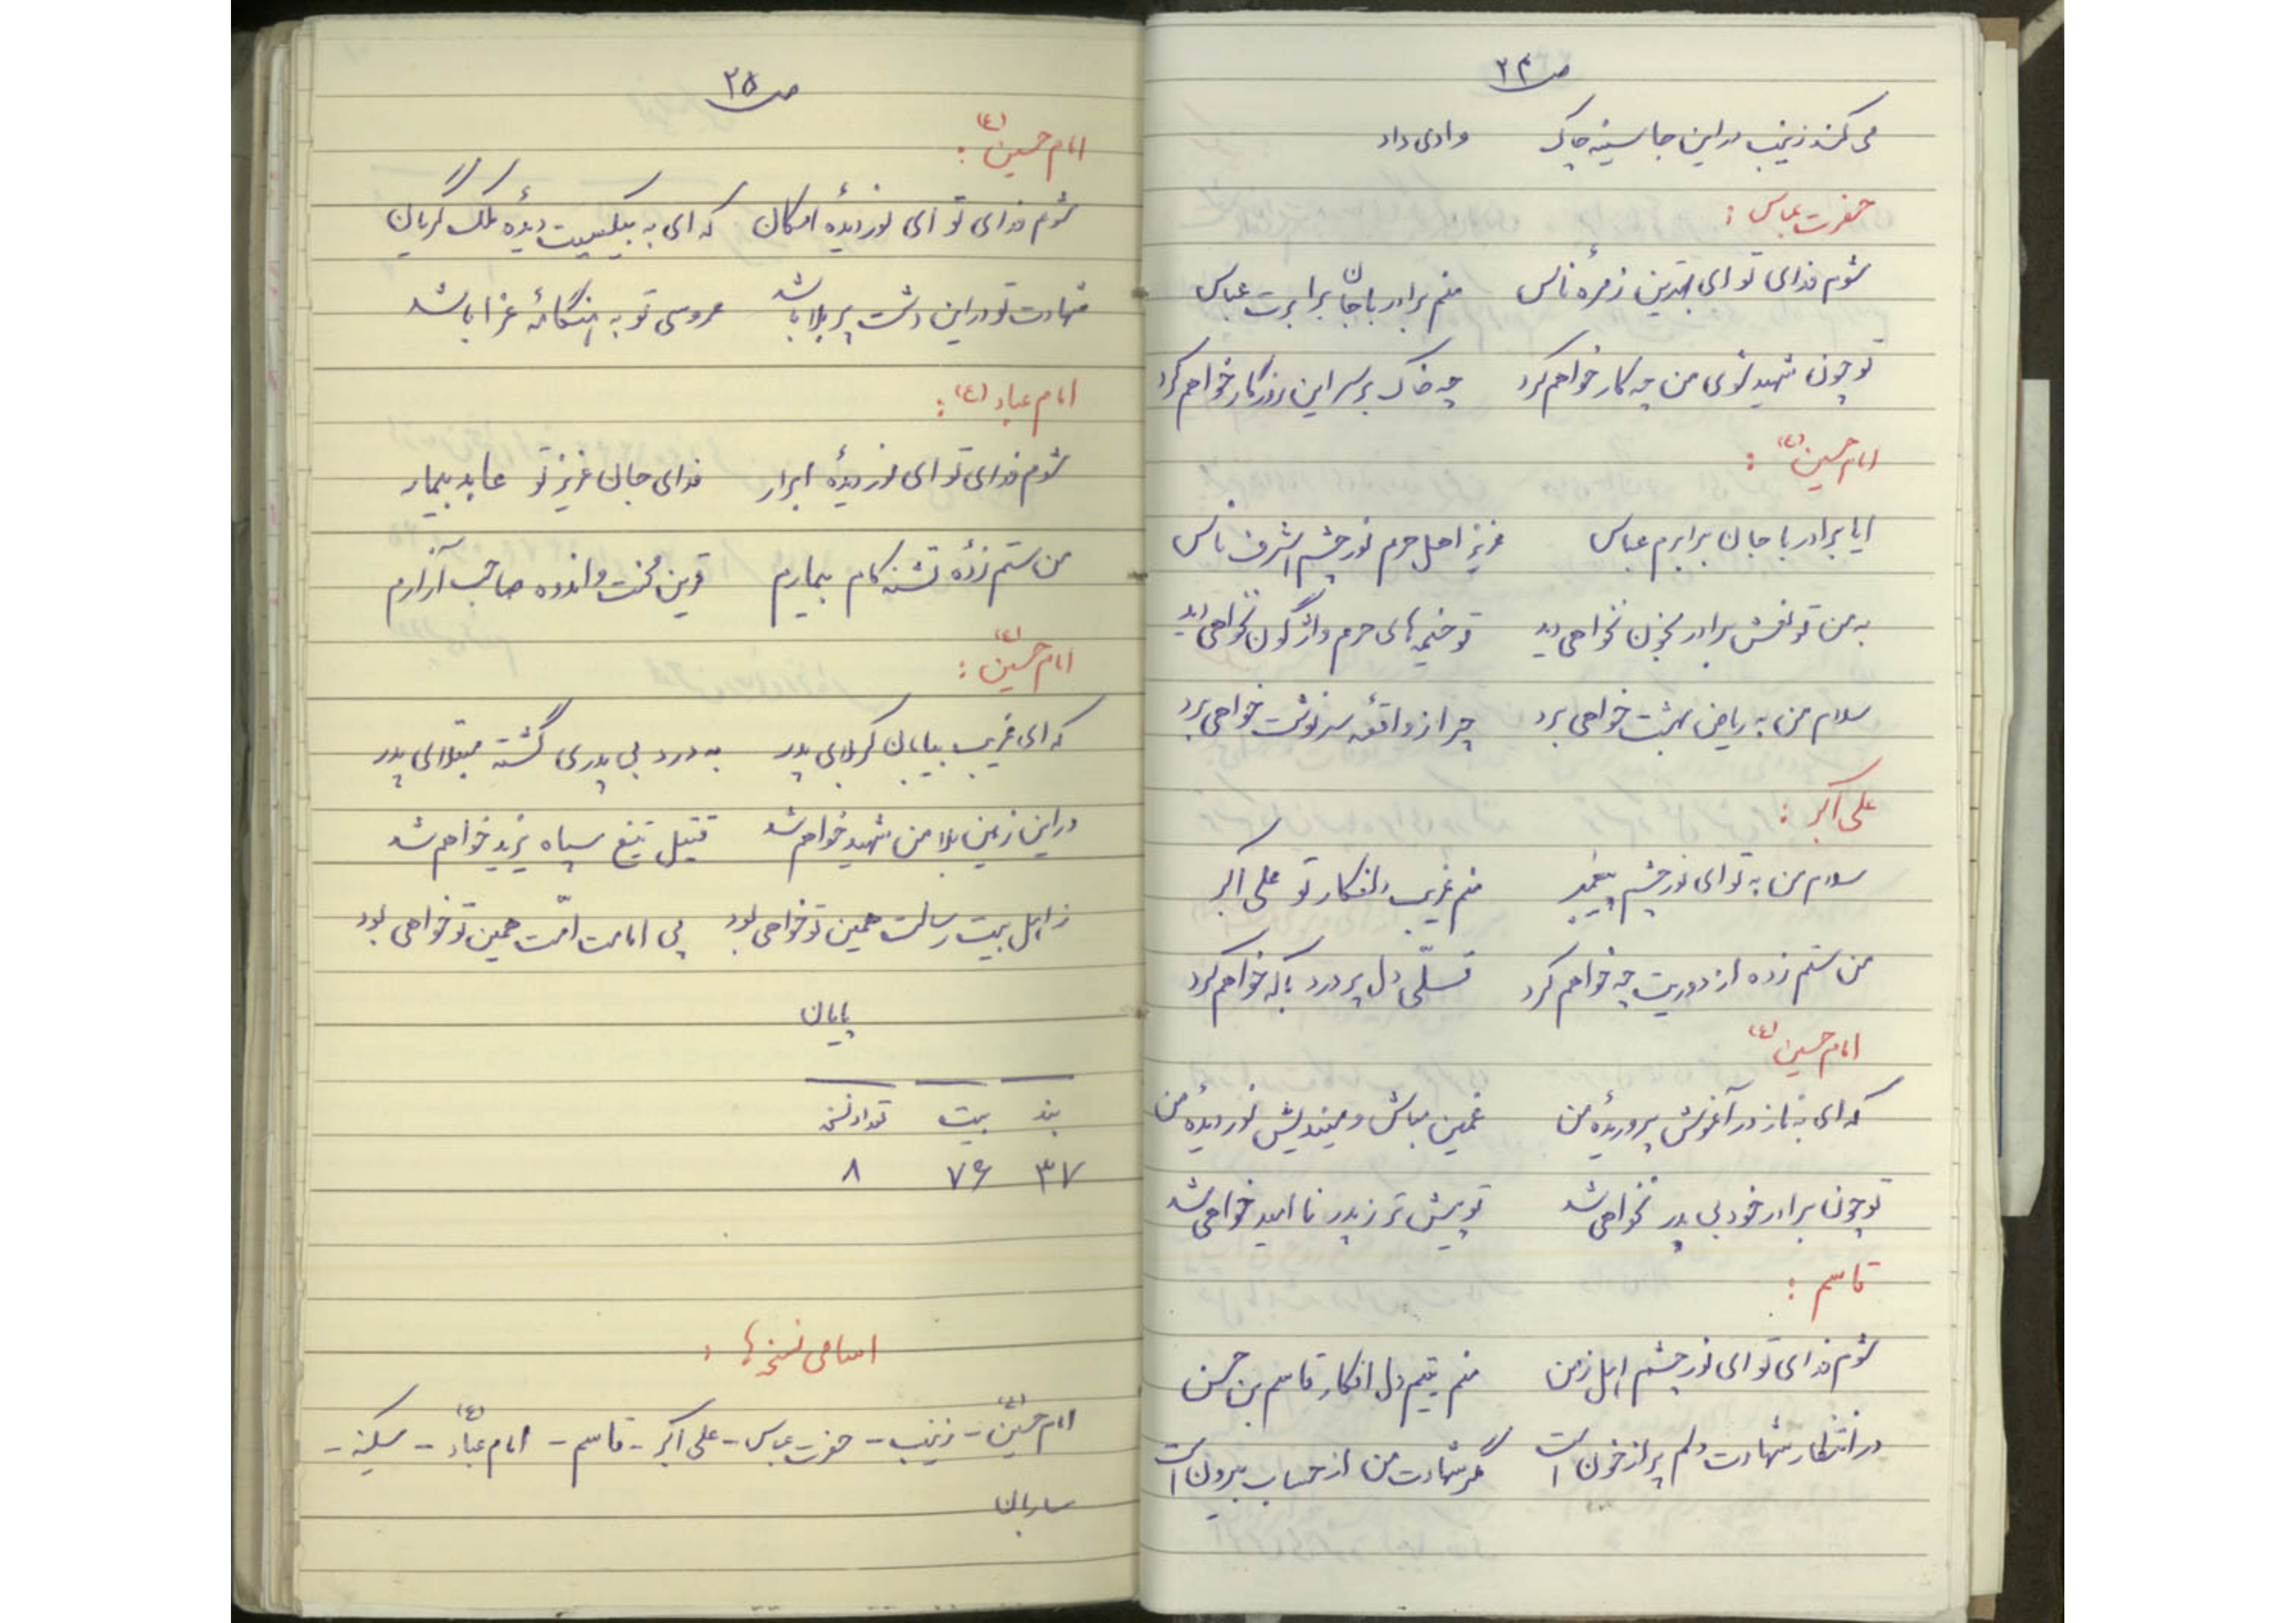 ص ۲۴
می‌کند زینب در این جا سینه چاک وادی داد
حضرت عباس :
شوم فدای تو ای بهترین زمرهٔ ناس منم برادر با جان برابرت عباس
تو چون شهید شوی من چه کار خواهم کرد چه خاک بر سر این روزگار خواهم کرد
امام حسین (ع) :
ایا برادر با جان برابرم عباس عزیز اهل حرم نور چشم اشرف ناس
به من تو نعش برادر بخون نخواهی دید تو خیمه‌های حرم واژگون نخواهی دید
سلام من به ریاض بهشت خواهی برد چرا ز واقعه سرنوشت خواهی برد
علی اکبر :
سلام من به تو ای نور چشم پیغمبر منم غریب دلفکار تو علی اکبر
من ستم زده از دوریت چه خواهم کرد تسلّی دل پر درد با که خواهم کرد
امام حسین (ع)
که ای به ناز در آغوش پروریدهٔ من غمین مباش و میندیش نور دیدهٔ من
تو چون برادر خود بی پدر نخواهی شد تو پیش‌تر ز پدر نا امید خواهی شد
قاسم :
شوم فدای تو ای نور چشم اهل زمن منم یتیم دل افکار قاسم بن حسن
در انتظار شهادت دلم پر از خون است مگر شهادت من از حساب بیرون است
ص ۲۵
امام حسین (ع) :
شوم فدای تو ای نور دیدهٔ امکان که ای به بیکسیت دیدهٔ ملک گریان
شهادت تو در این دشت پر بلا باشد عروسی تو به هنگامهٔ عزا باشد
امام عباد (ع) :
شوم فدای تو ای نور دیدهٔ ابرار فدای جان عزیز تو عابد بیمار
من ستم زدهٔ تشنه کام بیمارم قرین محنت و اندوه صاحب آزارم
امام حسین (ع) :
که ای غریب بیابان کربلای پدر به درد بی پدری گشته مبتلای پدر
در این زمین بلا من شهید خواهم شد قتیل تیغ سپاه یزید خواهم شد
ز اهل بیت رسالت همین تو خواهی بود پی امامت امّت همین تو خواهی بود
پایان
بند بیت تعداد نسخ
۳۷ ۷۶ ۸
اسامی نسخه‌ها :
امام حسین (ع) - زینب - حضرت عباس - علی اکبر - قاسم - امام عباد (ع) - سکینه -
ساربان